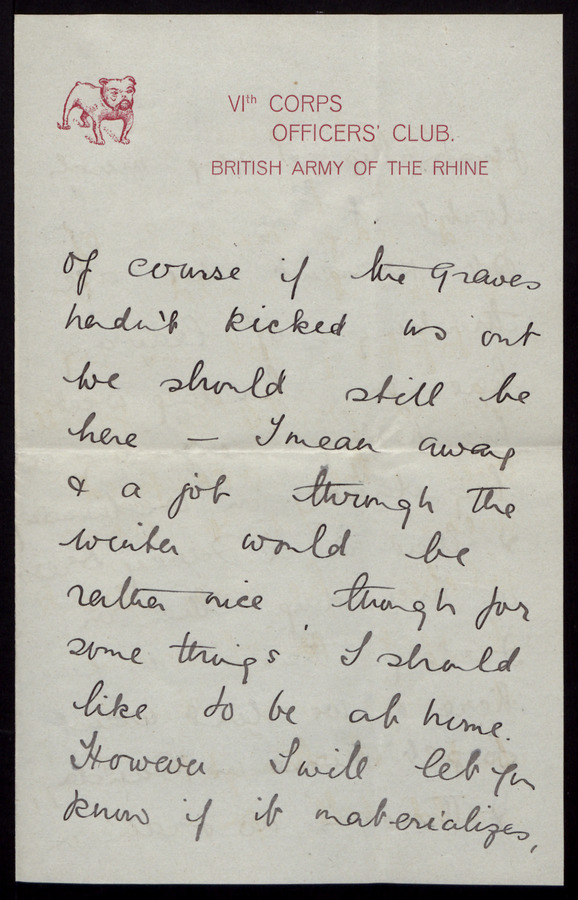 VIth CORPS
OFFICERS' CLUB.
BRITISH ARMY OF THE RHINE
of course if the Graves
hadn't kicked us out
we should still be
here — I mean away
& a job through the
winter would be
rather nice, though for
some things I should
like to be at home.
However I will let you
know if it materializes,